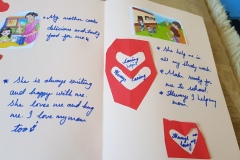 * My mother cooks
delicious and tasty
food for me.
* She is always smiling
and happy with me.
she loves me and hug
me. I love my mom
too.
Loving
Always caring
* She help me in
all my study work.
* Make ready for
me to school
* Always helping
mom.
Always